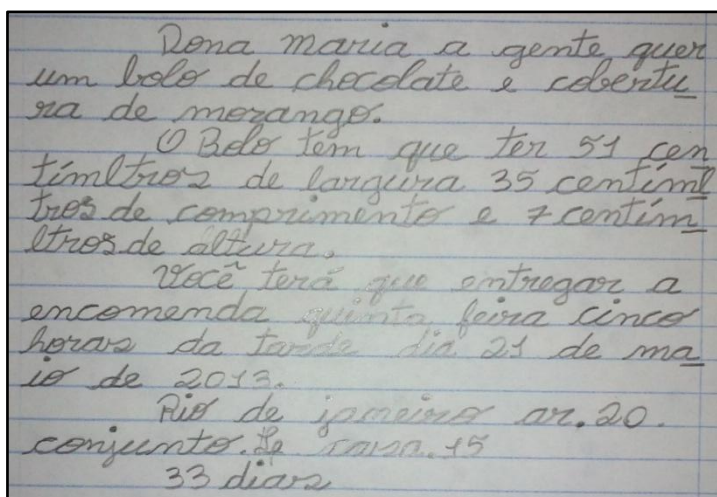 Dona maria a gente quer
um bolo de chocolate e cobertu
ra de morango.
O Bolo tem que ter 51 cen
tímetros de largura 35 centíme
tros de comprimento e 7 centím
etros de altura.
Você terá que entregar a
encomenda quinta feira cinco
horas da tarde dia 21 de ma
io de 2013.
Rio de janeiro ar. 20.
conjunto. casa. 15
33 dias